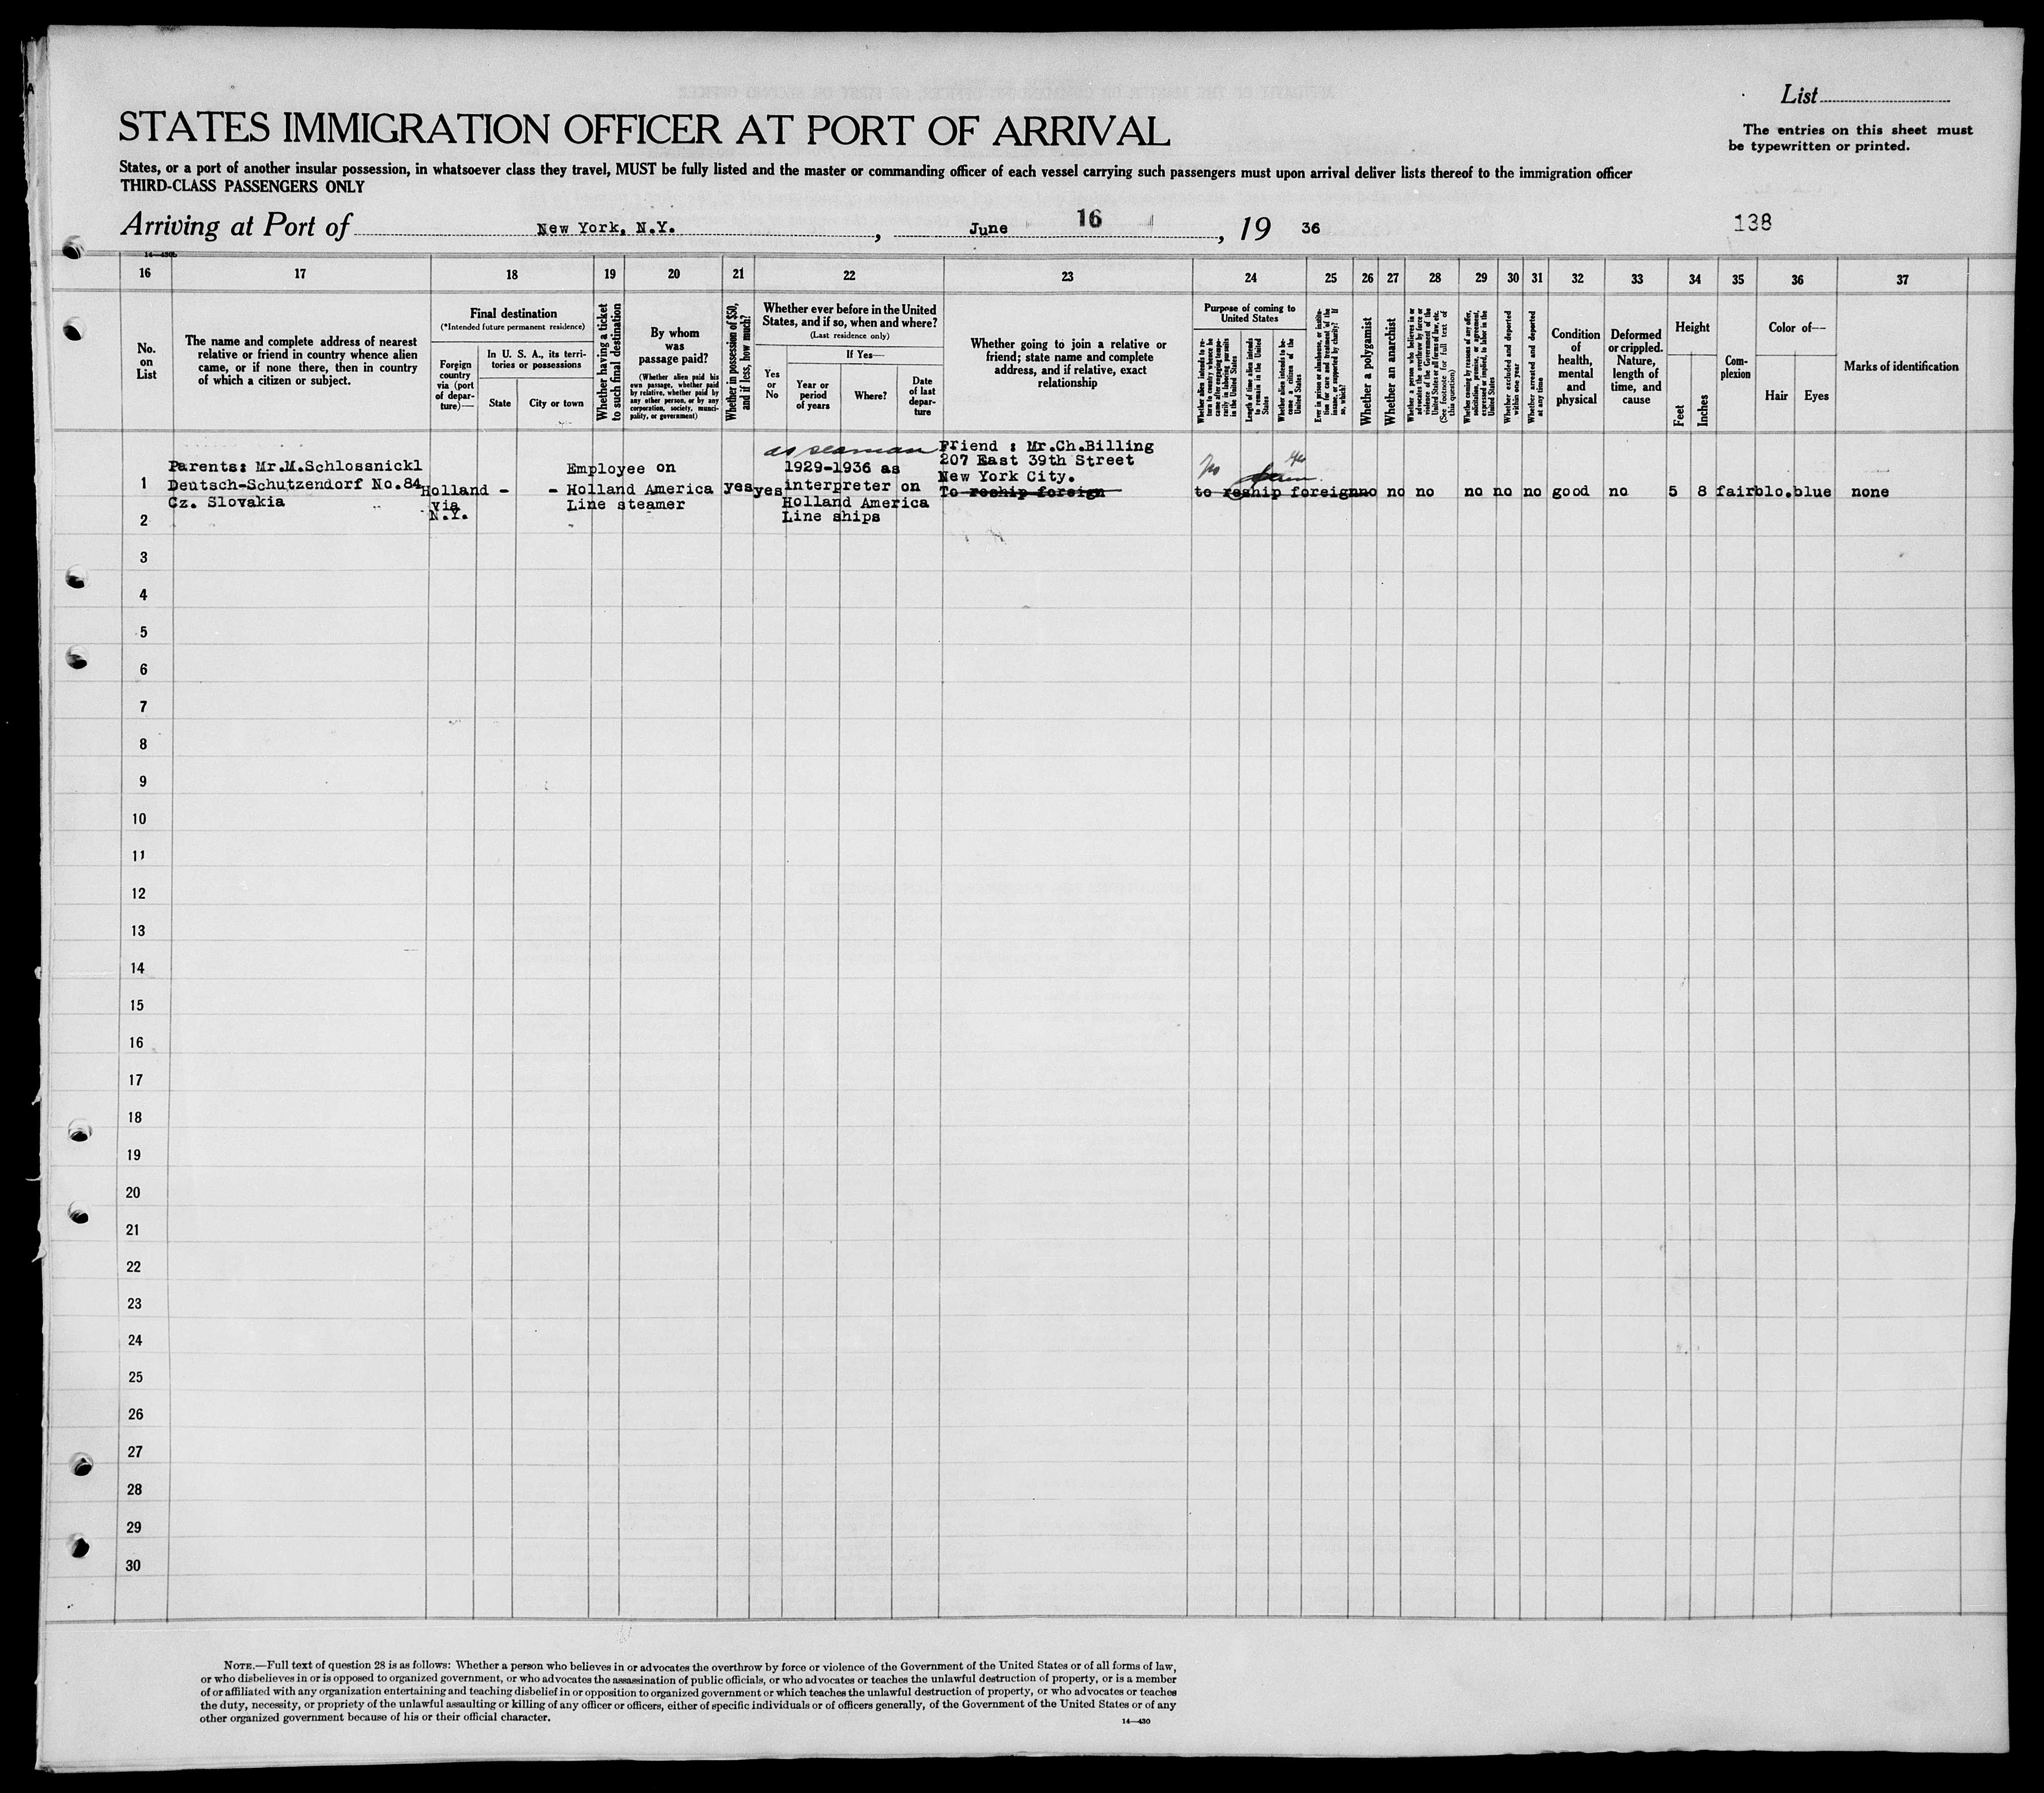 List
STATES IMMIGRATION OFFICER AT PORT OF ARRIVAL
The entries on this sheet must
be typewritten or printed.
States, or a port of another insular possession, in whatsoever class they travel, MUST be fully listed and the master or commanding officer of each vessel carrying such passengers must upon arrival deliver lists thereof to the immigration officer
THIRD-CLASS PASSENGERS ONLY
Arriving at Port of New York, N.Y. , June 16 , 19 36
138
14—430b
16 17 18 19 20 21 22 23 24 25 26 27 28 29 30 31 32 33 34 35 36 37
No.
on
List
The name and complete address of nearest
relative or friend in country whence alien
came, or if none there, then in country
of which a citizen or subject.
Final destination
(*Intended future permanent residence)
Foreign
country
via (port
of depar-
ture)—
In U. S. A., its terri-
tories or possessions
State
City or town
Whether having a ticket
to such final destination
By whom
was
passage paid?
(Whether alien paid his
own passage, whether paid
by relative, whether paid by
any other person, or by any
corporation, society, munici-
pality, or government)
Whether in possession of $50,
and if less, how much?
Whether ever before in the United
States, and if so, when and where?
(Last residence only)
Yes
or
No
If Yes—
Year or
period
of years
Where?
Date
of last
depar-
ture
Whether going to join a relative or
friend; state name and complete
address, and if relative, exact
relationship
Purpose of coming to
United States
Whether alien intends to re-
turn to country whence he
came after engaging tempo-
rarily in laboring pursuits
in the United States
Length of time alien intends
to remain in the United
States
Whether alien intends to be-
come a citizen of the
United States
Ever in prison or almshouse, or institu-
tion for care and treatment of the
insane, or supported by charity? If
so, which?
Whether a polygamist
Whether an anarchist
Whether a person who believes in or
advocates the overthrow by force or
violence of the Government of the
United States or all forms of law, etc.
(See footnote for full text of
this question)
Whether coming by reasons of any offer,
solicitation, promise, or agreement,
expressed or implied, to labor in the
United States
Whether excluded and deported
within one year
Whether arrested and deported
at any time
Condition
of
health,
mental
and
physical
Deformed
or crippled.
Nature,
length of
time, and
cause
Height
Feet
Inches
Com-
plexion
Color of—
Hair
Eyes
Marks of identification
1
Parents: Mr.M.Schlossnickl
Deutsch-Schutzendorf No.84
Cz. Slovakia
Holland
via
N.Y.
-
-
Employee on
Holland America
Line steamer
yes
yes
as seaman
1929-1936 as
interpreter on
Holland America
Line ships
Friend : Mr.Ch.Billing
207 East 39th Street
New York City.
To reship foreign
to reship foreign
no no no no no no good no 5 8 fair blo. blue none
2
3
4
5
6
7
8
9
10
11
12
13
14
15
16
17
18
19
20
21
22
23
24
25
26
27
28
29
30
NOTE.—Full text of question 28 is as follows: Whether a person who believes in or advocates the overthrow by force or violence of the Government of the United States or of all forms of law,
or who disbelieves in or is opposed to organized government, or who advocates the assassination of public officials, or who advocates or teaches the unlawful destruction of property, or is a member
of or affiliated with any organization entertaining and teaching disbelief in or opposition to organized government or which teaches the unlawful destruction of property, or who advocates or teaches
the duty, necessity, or propriety of the unlawful assaulting or killing of any officer or officers, either of specific individuals or of officers generally, of the Government of the United States or of any
other organized government because of his or their official character.
14—430